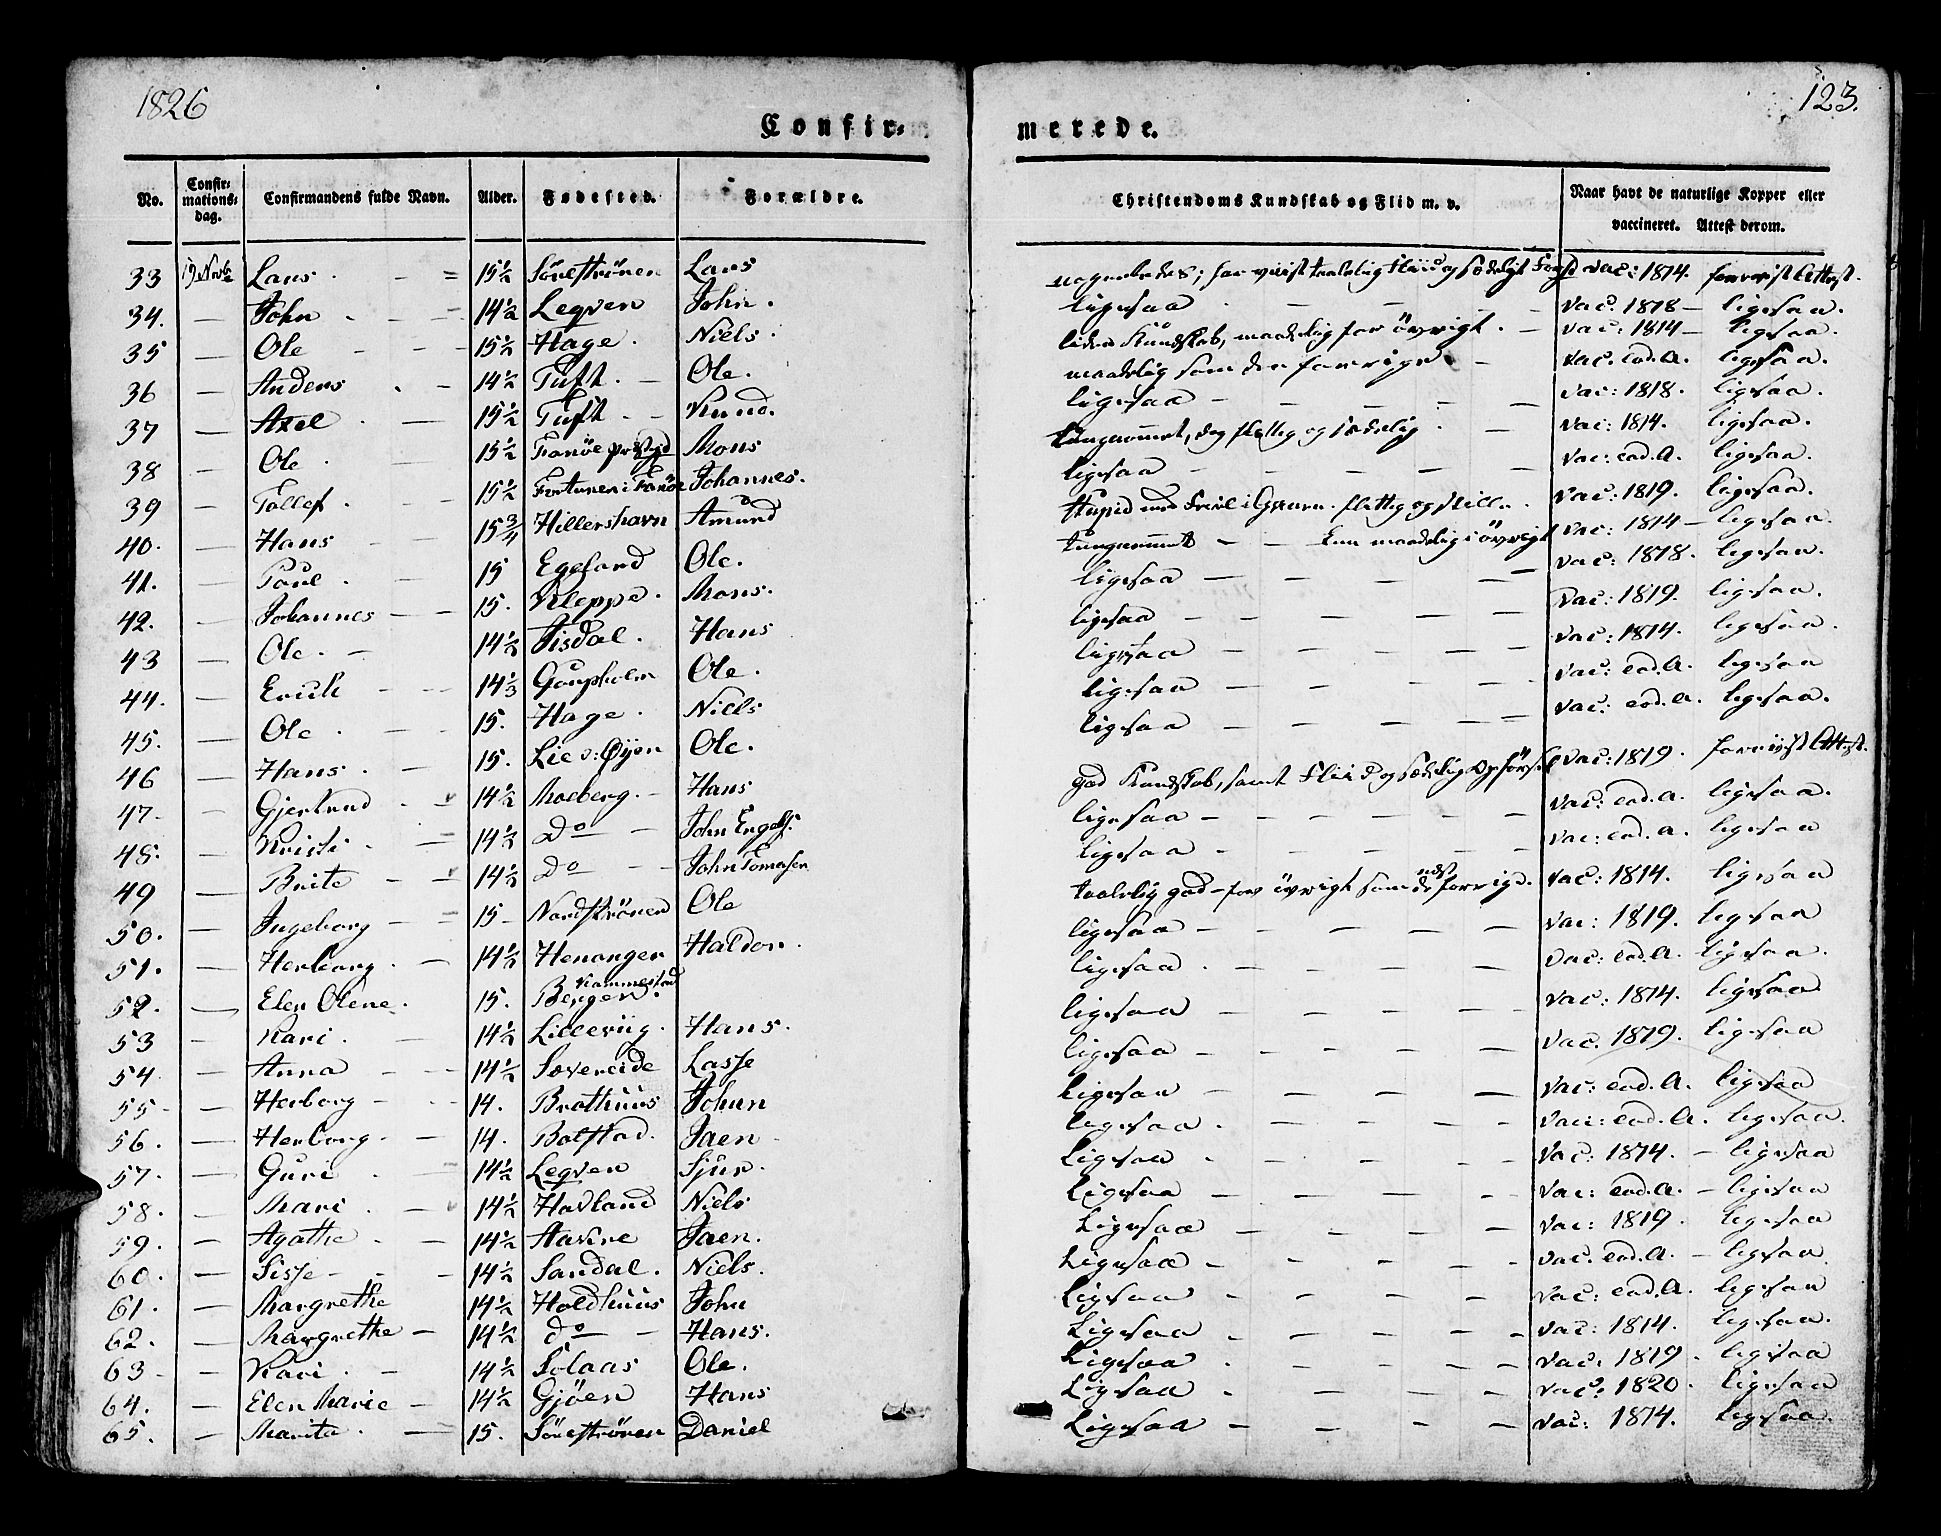 1826
123.
Confir-
merede.
No. Confir-mations-dag. Confirmandens fulde Navn. Alder. Fødested. Forældre. Christendoms Kundskab og Flid m. v. Naar havt de naturlige Kopper eller vaccineret. Attest derom.
33 19de Novb Lars - = 15½ Söreströnen Lars vac: 1814. foreviist Attest.
34. — John - - 14½ Legven John. ligesaa - - - vac. 1818 — ligesaa.
35 — Ole - - - 15½ Hage. Niels. liden Kundskab, maadelig for övrigt. — vac: 1814 — ligesaa.
36 — Anders - - 14½ Tuft. — Ole. maadelig som den forrige - vac. eod. A. ligesaa.
37 — Axel. — 15½ Tuft - - Knud. ligesaa - - - vac: 1818. ligesaa.
38 — Ole. — 15½ Fanöe Mons tungnemmet, dog flittig og sædelig. — vac: 1814. ligesaa.
39 — Tollef. - 15½ Fortunen i Fanöe Johannes. ligesaa - - - vac: eod. A. ligesaa.
40. — Hans - - 15¾ Hillershavn Amund flittig og stille. vac: 1819. ligesaa.
41. — Poul. - 15 Egeland Ole. tungnemmet - - kun maadelig i övrigt vac: 1814 — ligesaa.
42. — Johannes - - 15. Kleppe. Mons. ligesaa - - - vac: 1818. ligesaa.
43 — Ole. - 14½ Tisdal. Hans ligesaa - - - vac: 1819. ligesaa.
44. — Erich - - 14⅓ Ole. ligesaa - - - vac: 1814. ligesaa.
45. — Ole. - 15. Hage. Niels ligesaa - - - vac: eod. A. ligesaa
46 — Hans. - 15. Lie v: Öÿen Ole. ligesaa - - - vac: eod. A. ligesaa.
47. — Gjertrud. - 14½ Moeberg. - Hans god Kundskab, samt Fliid og sædelig Opförsel vac: 1819. foreviist Attest.
48. — Kristi. - 14½ Do — John Engels. ligesaa - - - vac: eod. A. ligesaa.
49 — Brite - - 14½ Do — John Tomasen ligesaa - - - vac: eod. A. ligesaa
50. — Ingeborg - - 15 - Nordströnen Ole taalelig god - for övrigt som de næst forrige. vac: 1814. ligesaa
51. — Herborg. - 14½ Henanger Haldor. ligesaa - - - vac: 1819. ligesaa
52. — Elen Olene. 15. Bergen. ligesaa - - - vac: eod. A. ligesaa.
53 — Kari. - 14½ Lilleviig. Hans. ligesaa - - - vac: 1814. ligesaa
54. — Anna - - 14½ Sævereide Lasse ligesaa - - - vac. 1819. ligesaa
55 - — Herborg - - 14. Brathuus Johan ligesaa - - - vac: eod. A. ligesaa
56. — Herborg. - 14. Bolstad. Jaen - ligesaa - - - vac: eod. A. ligesaa.
57. — Guri. - 14½ Legven Sjur. ligesaa - - - vac: 1814. — ligesaa
58. — Mari. - 14½ Havland Niels ligesaa - - - vac: eod. A. — ligesaa
59. — Agathe. - 14½ Havire Jaen. ligesaa - - - vac: 1819. ligesaa
60. — Sisse - - - 14½ Sandal. Niels. ligesaa - - - vac. eod. A. — ligesaa
61. — Margrethe 14½ Holdhuus John ligesaa - - - vac: eod. A. ligesaa
62. — Margrethe - 14½ do — Hans. ligesaa - - - vac: 1814. ligesaa.
63 - — Kari. - 14½ Solaas Ole. ligesaa - - - vac: 1819. ligesaa
64. — Elen Marie - 14½ Gjöen Hans ligesaa - - - vac. 1820. ligesaa
65. — Marita. - 15. Söreströnen Daniel ligesaa - - - vac: 1814. ligesaa.